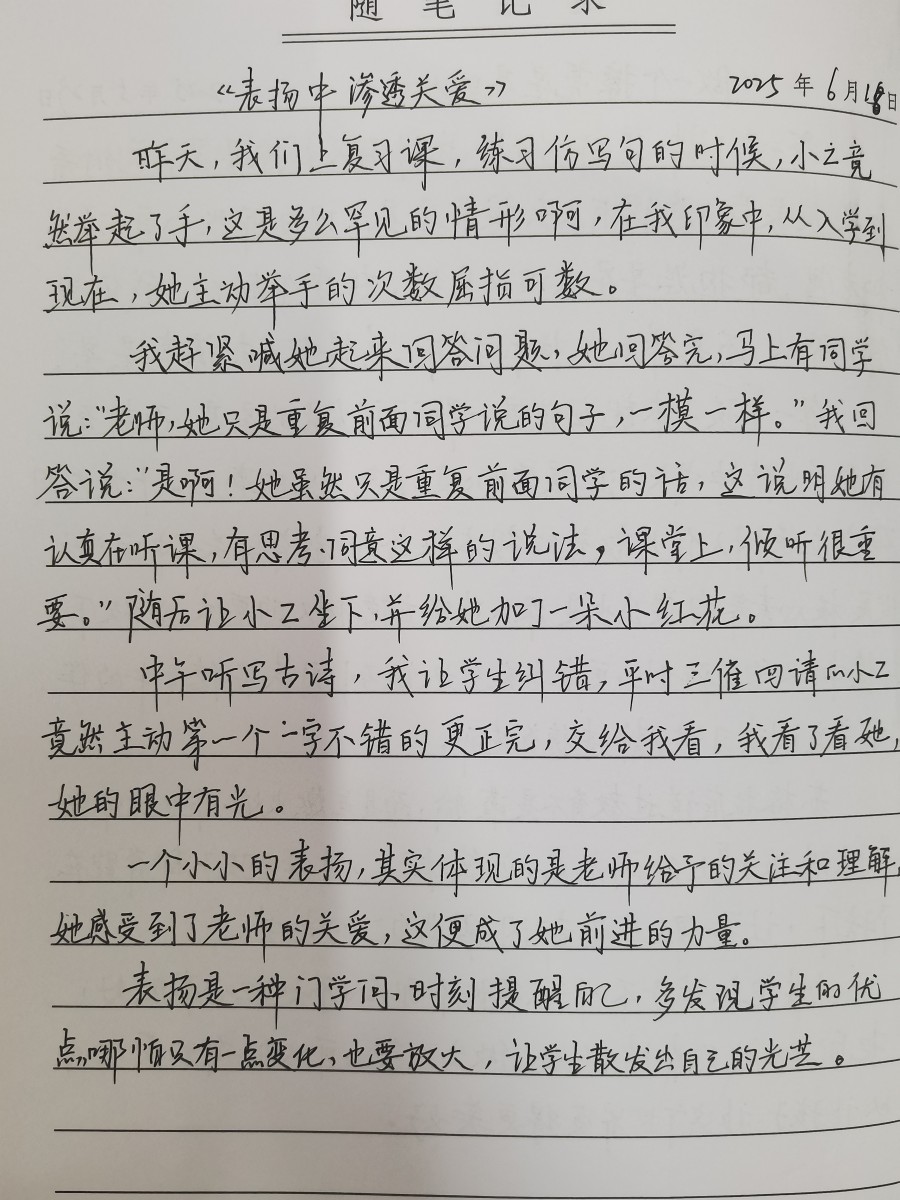 随笔记录
《表扬中渗透关爱》 2025年6月18日
昨天，我们上复习课，练习仿写句的时候，小Z竟
然举起了手，这是多么罕见的情形啊，在我印象中，从入学到
现在，她主动举手的次数屈指可数。
我赶紧喊她起来回答问题，她回答完，马上有同学
说："老师，她只是重复前面同学说的句子，一模一样。"我回
答说："是啊！她虽然只是重复前面同学的话，这说明她有
认真在听课，有思考、同意这样的说法，课堂上，倾听很重
要。"随后让小Z坐下，并给她加了一朵小红花。
中午听写古诗，我让学生纠错，平时三催四请的小Z
竟然主动第一个一字不错的更正完，交给我看，我看了看她，
她的眼中有光。
一个小小的表扬，其实体现的是老师给予的关注和理解，
她感受到了老师的关爱，这便成了她前进的力量。
表扬是一种门学问，时刻提醒自己，多发现学生的优
点，哪怕只有一点变化，也要放大，让学生散发出自己的光芒。